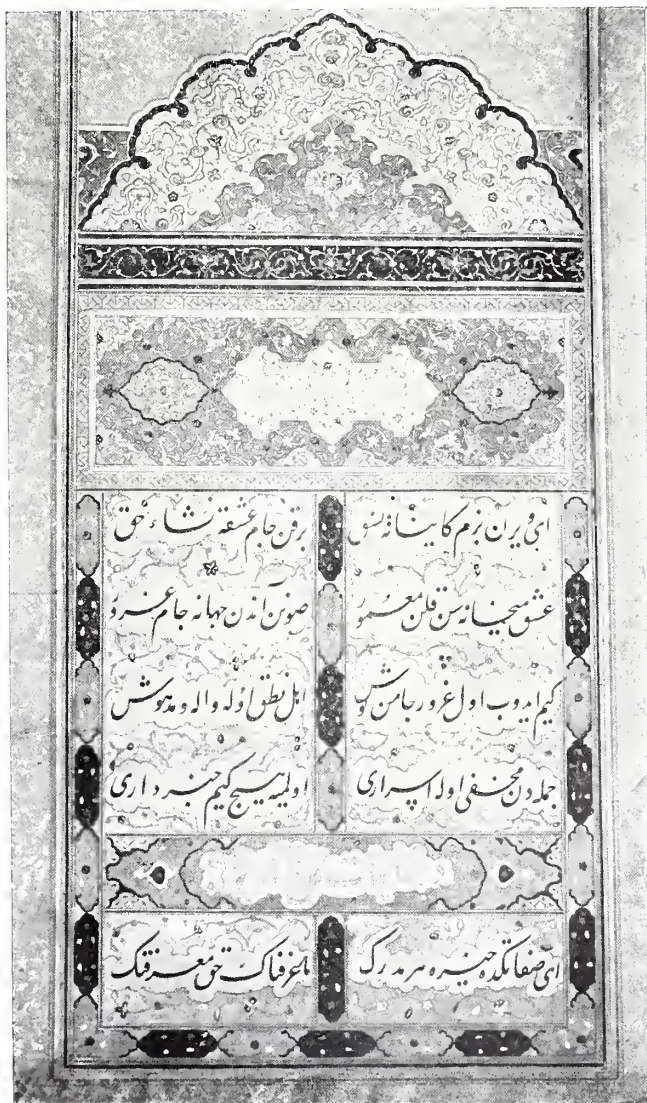 ای ویرن بزم کایناته نسق برقن جام عشقه نشاء حق
عشق میخانه سن قلن معمور صونن آندن جهانه جام غرور
کیم ایدوب اول غرور جامن نوش اهل نطق اوله واله و مدهوش
جمله دن مخفی اوله اسراری اولمیه هیچ کیم خبرداری
ای صفاتکده خیره هر مدرک ماعرفناک حق معرفتک